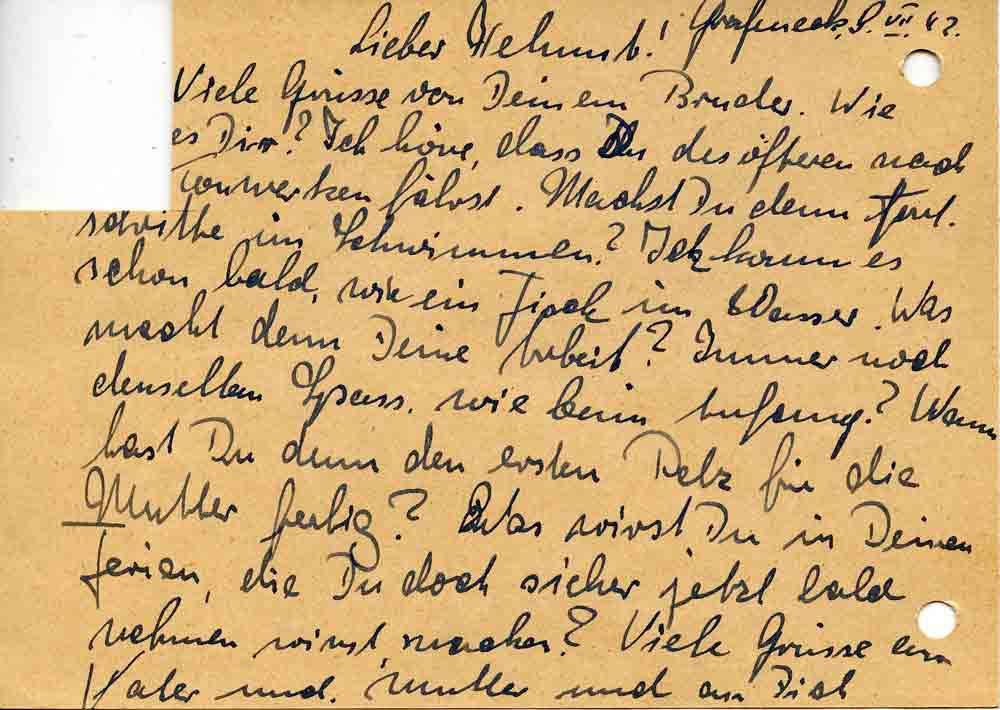 Lieber Helmut! Grafeneck, 8. VII. 42.
Viele Grüsse von Deinem Bruder. Wie
es Dir? Ich höre, dass Du des öfteren nach
fährst. Machst Du denn Fort-
schritte im Schwimmen? Ich kann es
schon bald, wie ein Fisch im Wasser. Was
macht denn Deine Arbeit? Immer noch
denselben Spass, wie beim Anfang? Wann
hast Du denn den ersten Pelz für die
Mutter fertig? Was wirst Du in Deinen
Ferien, die Du doch sicher jetzt bald
nehmen wirst, machen? Viele Grüsse an
Vater und. Mutter und an Dich